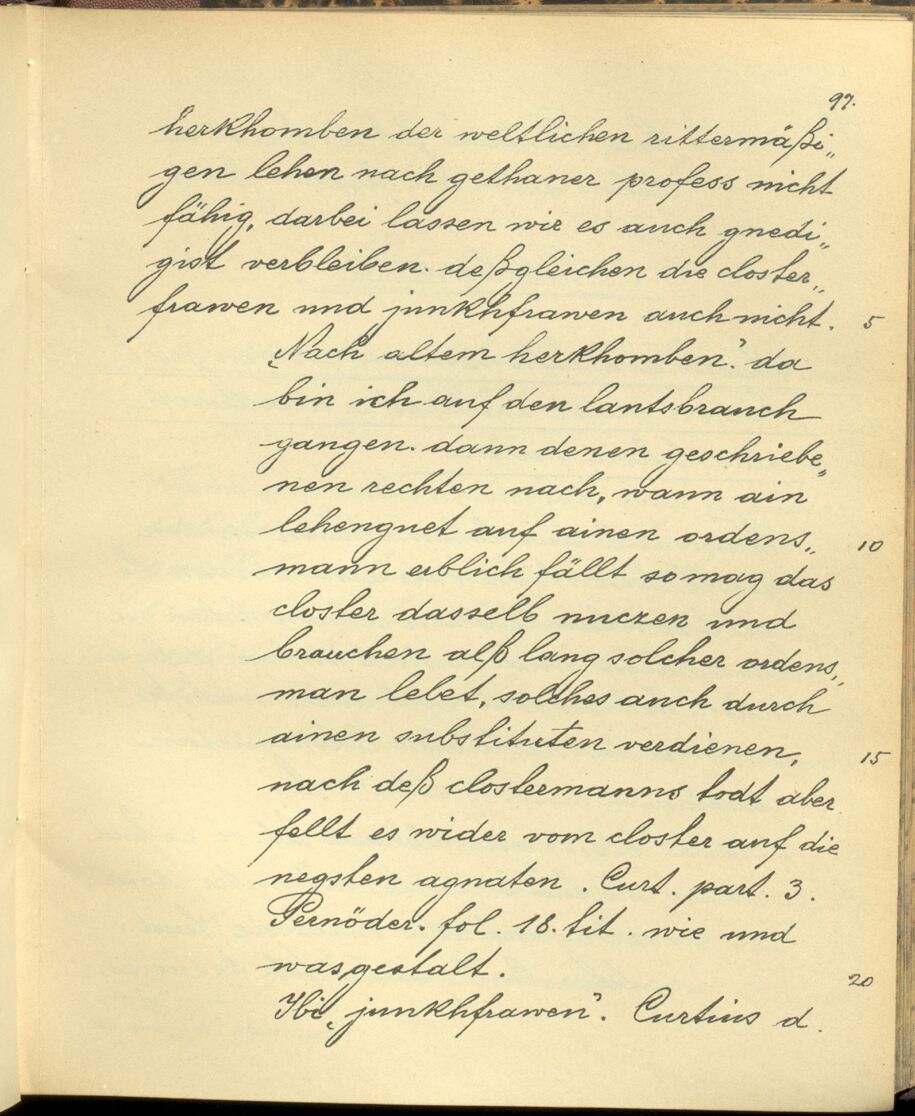 97.
herkhomben der weltlichen rittermäßi„
gen lehen nach gethaner profess nicht
fähig, darbei lassen wir es auch gnedi„
gist verbleiben. deßgleichen die closter„
frawen und junkhfrawen auch nicht. 5
„Nach altem herkhomben". da
bin ich auf den lantsbrauch
gangen. dann denen geschriebe„
nen rechten nach, wann ain
lehenguet auf ainen ordens„ 10
mann erblich fällt so mag das
closter dasselb nuczen und
brauchen alß lang solcher ordens„
man lebet, solches auch durch
ainen substituten verdienen, 15
nach deß clostermanns todt aber
fellt es wider vom closter auf die
negsten agnaten. Curt. part. 3.
Pernöder. fol. 18. tit. wie und
wasgestalt. 20
Ibi „junkhfrawen". Curtius d.